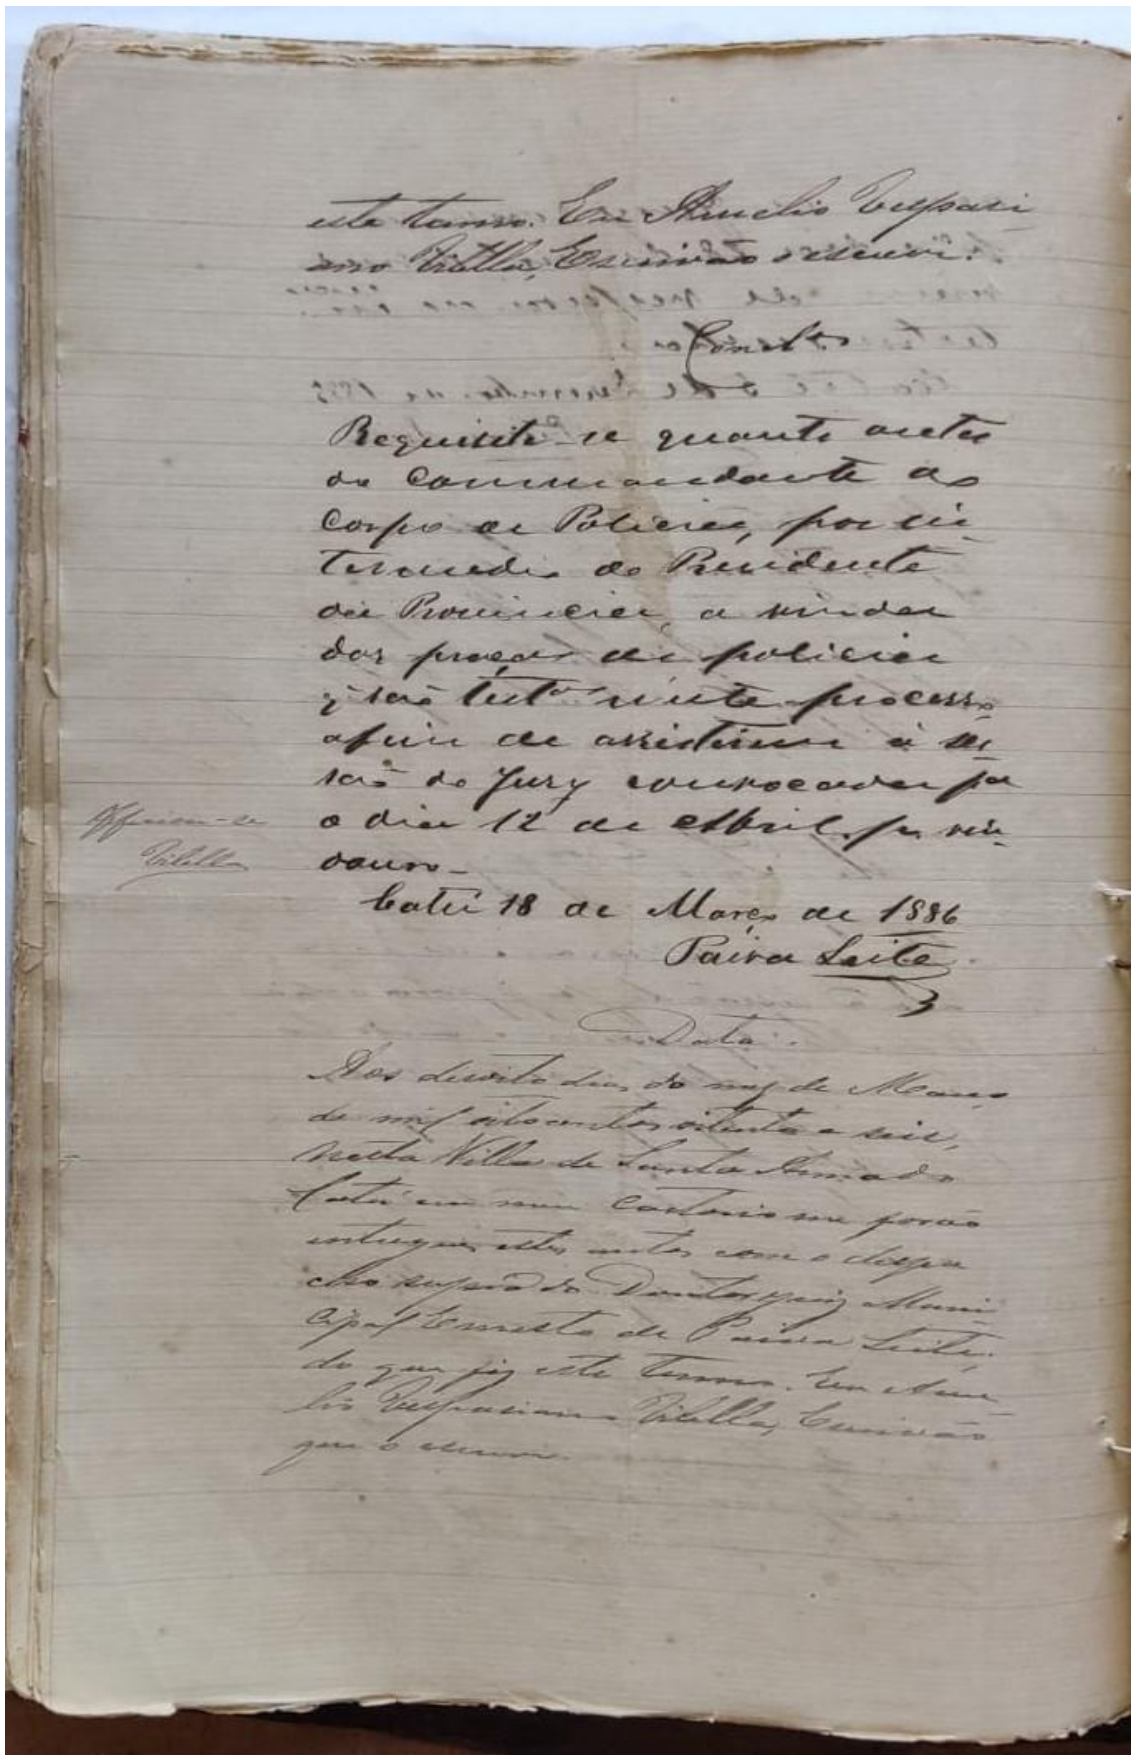 este termo. Eu Aurelio Vespasi
ano Vilella, Escrivão o escrevi.
Conclºs
Requisite-se quanto antes
do Commandante do
Corpo de Policia, por in-
termedio do Presidente
da Provincia, a vinda
das praças de policia
q são testªs neste processo,
afim de assistirem á ses
são do Jury convocada pª
o dia 12 de Abril p. vin-
douro_
Officiou-se
Vilella
Catú 18 de Março de 1886
Paiva Leite
Data.
Aos desoito dias do mez de Março
de mil oitocentos oitenta e seis,
nesta Villa de Santa Anna do
Catú em meu Cartorio me forão
entregues estes autos com o despa
cho supra do Doutor Juiz Muni
cipal Ernesto de Paiva Leite;
do que fiz este termo. Eu Aure
lio Vespasiano Vilella, Escrivão
que o escrevi.